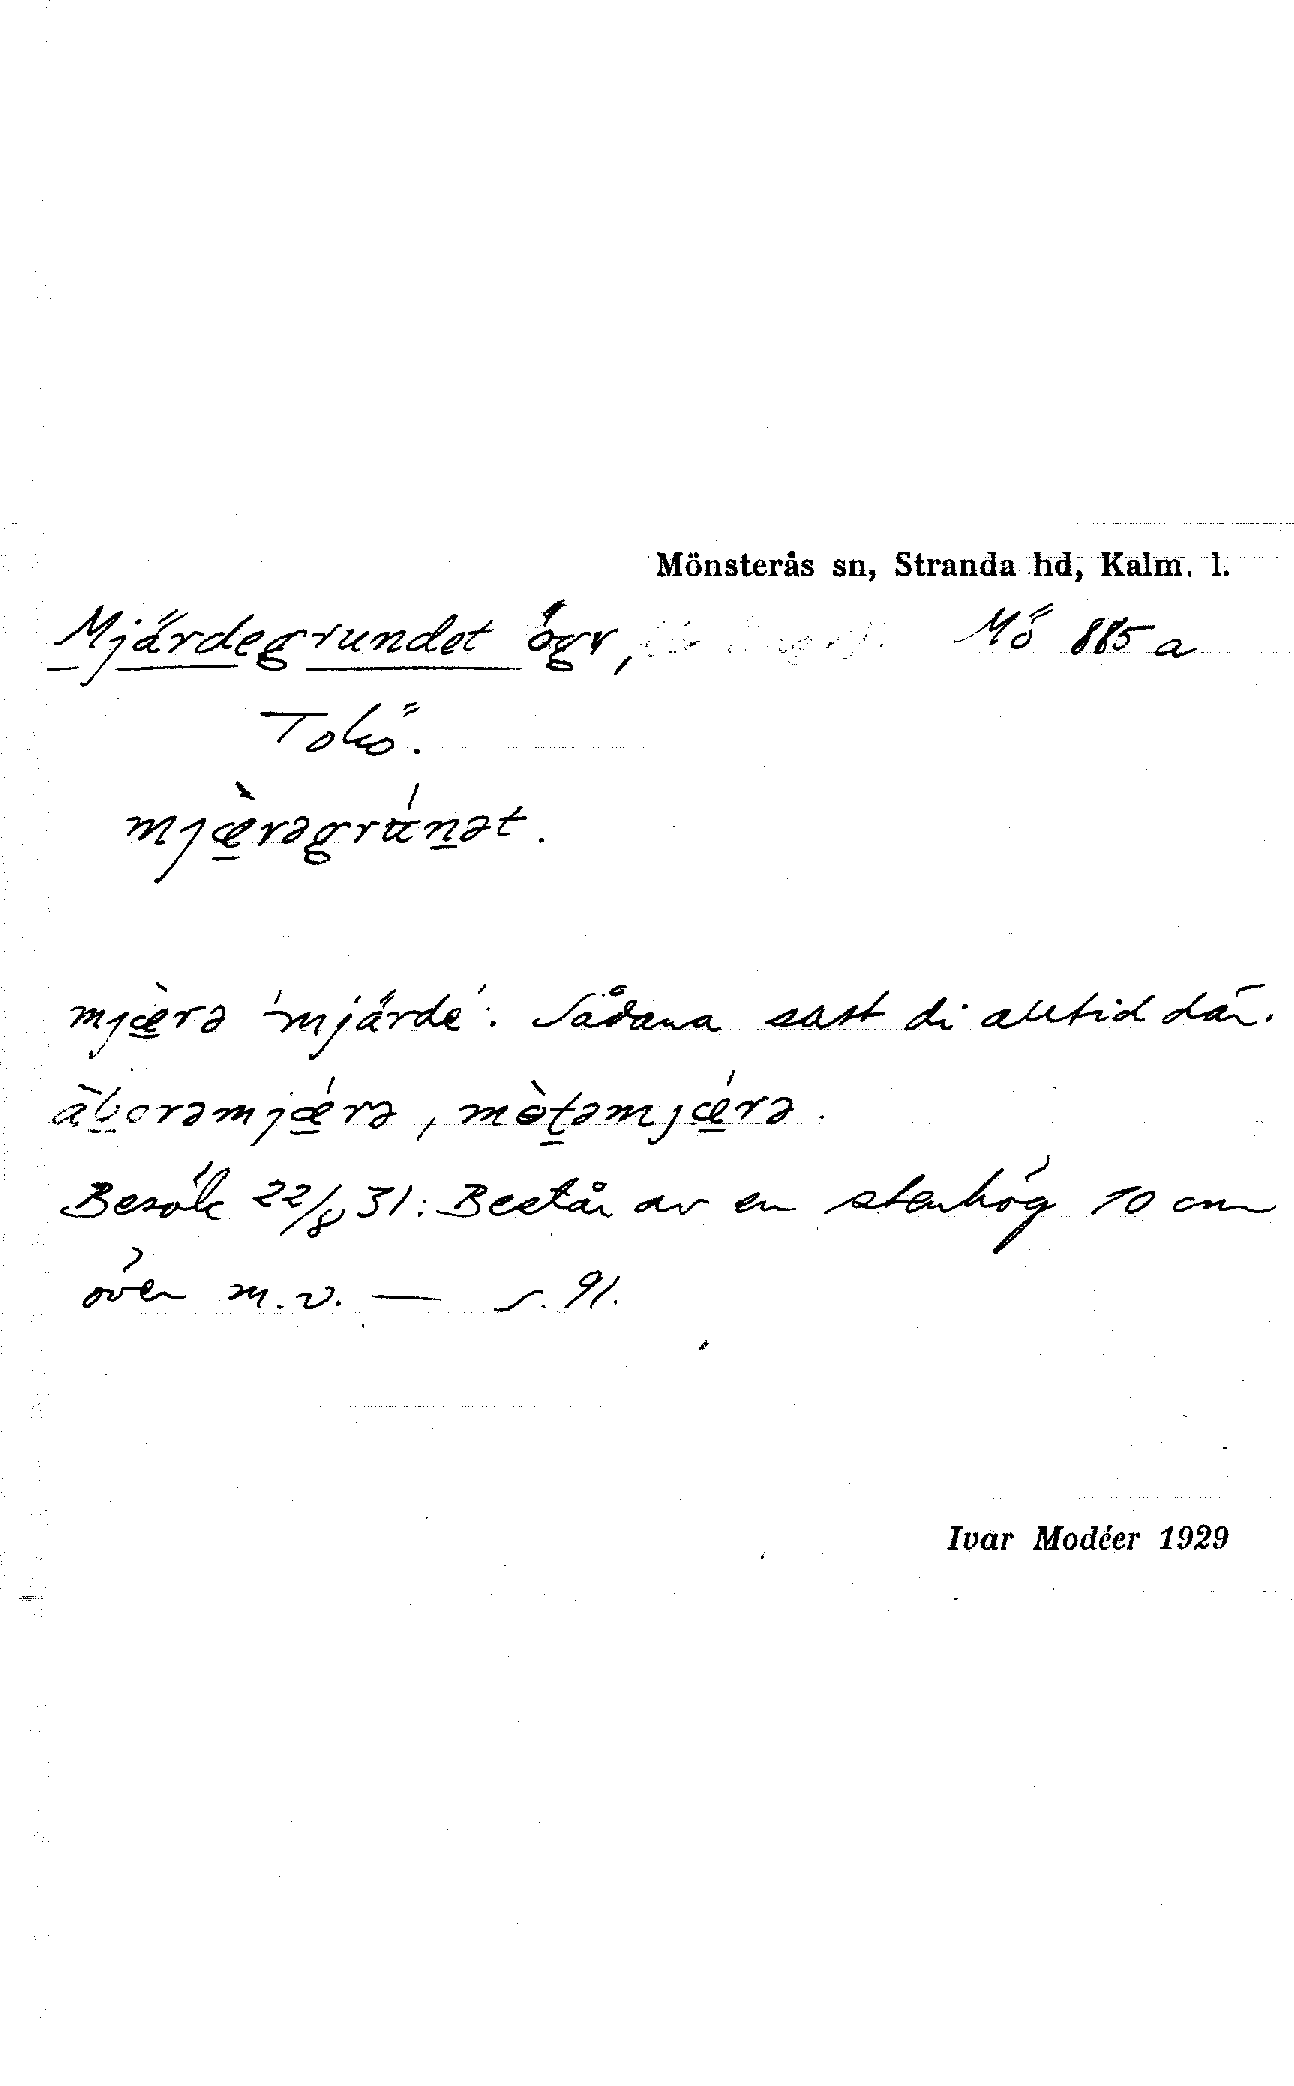 Mönsterås sn, Stranda hd, Kalm. l.
Mjärdegrundet ögr, Mö 885 a
Tokö.
mjæ̀rəgrúnət.
mjæ̀rə 'mjärde'. Sådana satt di alltid där.
àborəmjǽrə, mòtəmjǽrə.
Besök 22/8 31: Består av en stenhög 10 cm
över m.v. — s. 91.
Ivar Modéer 1929